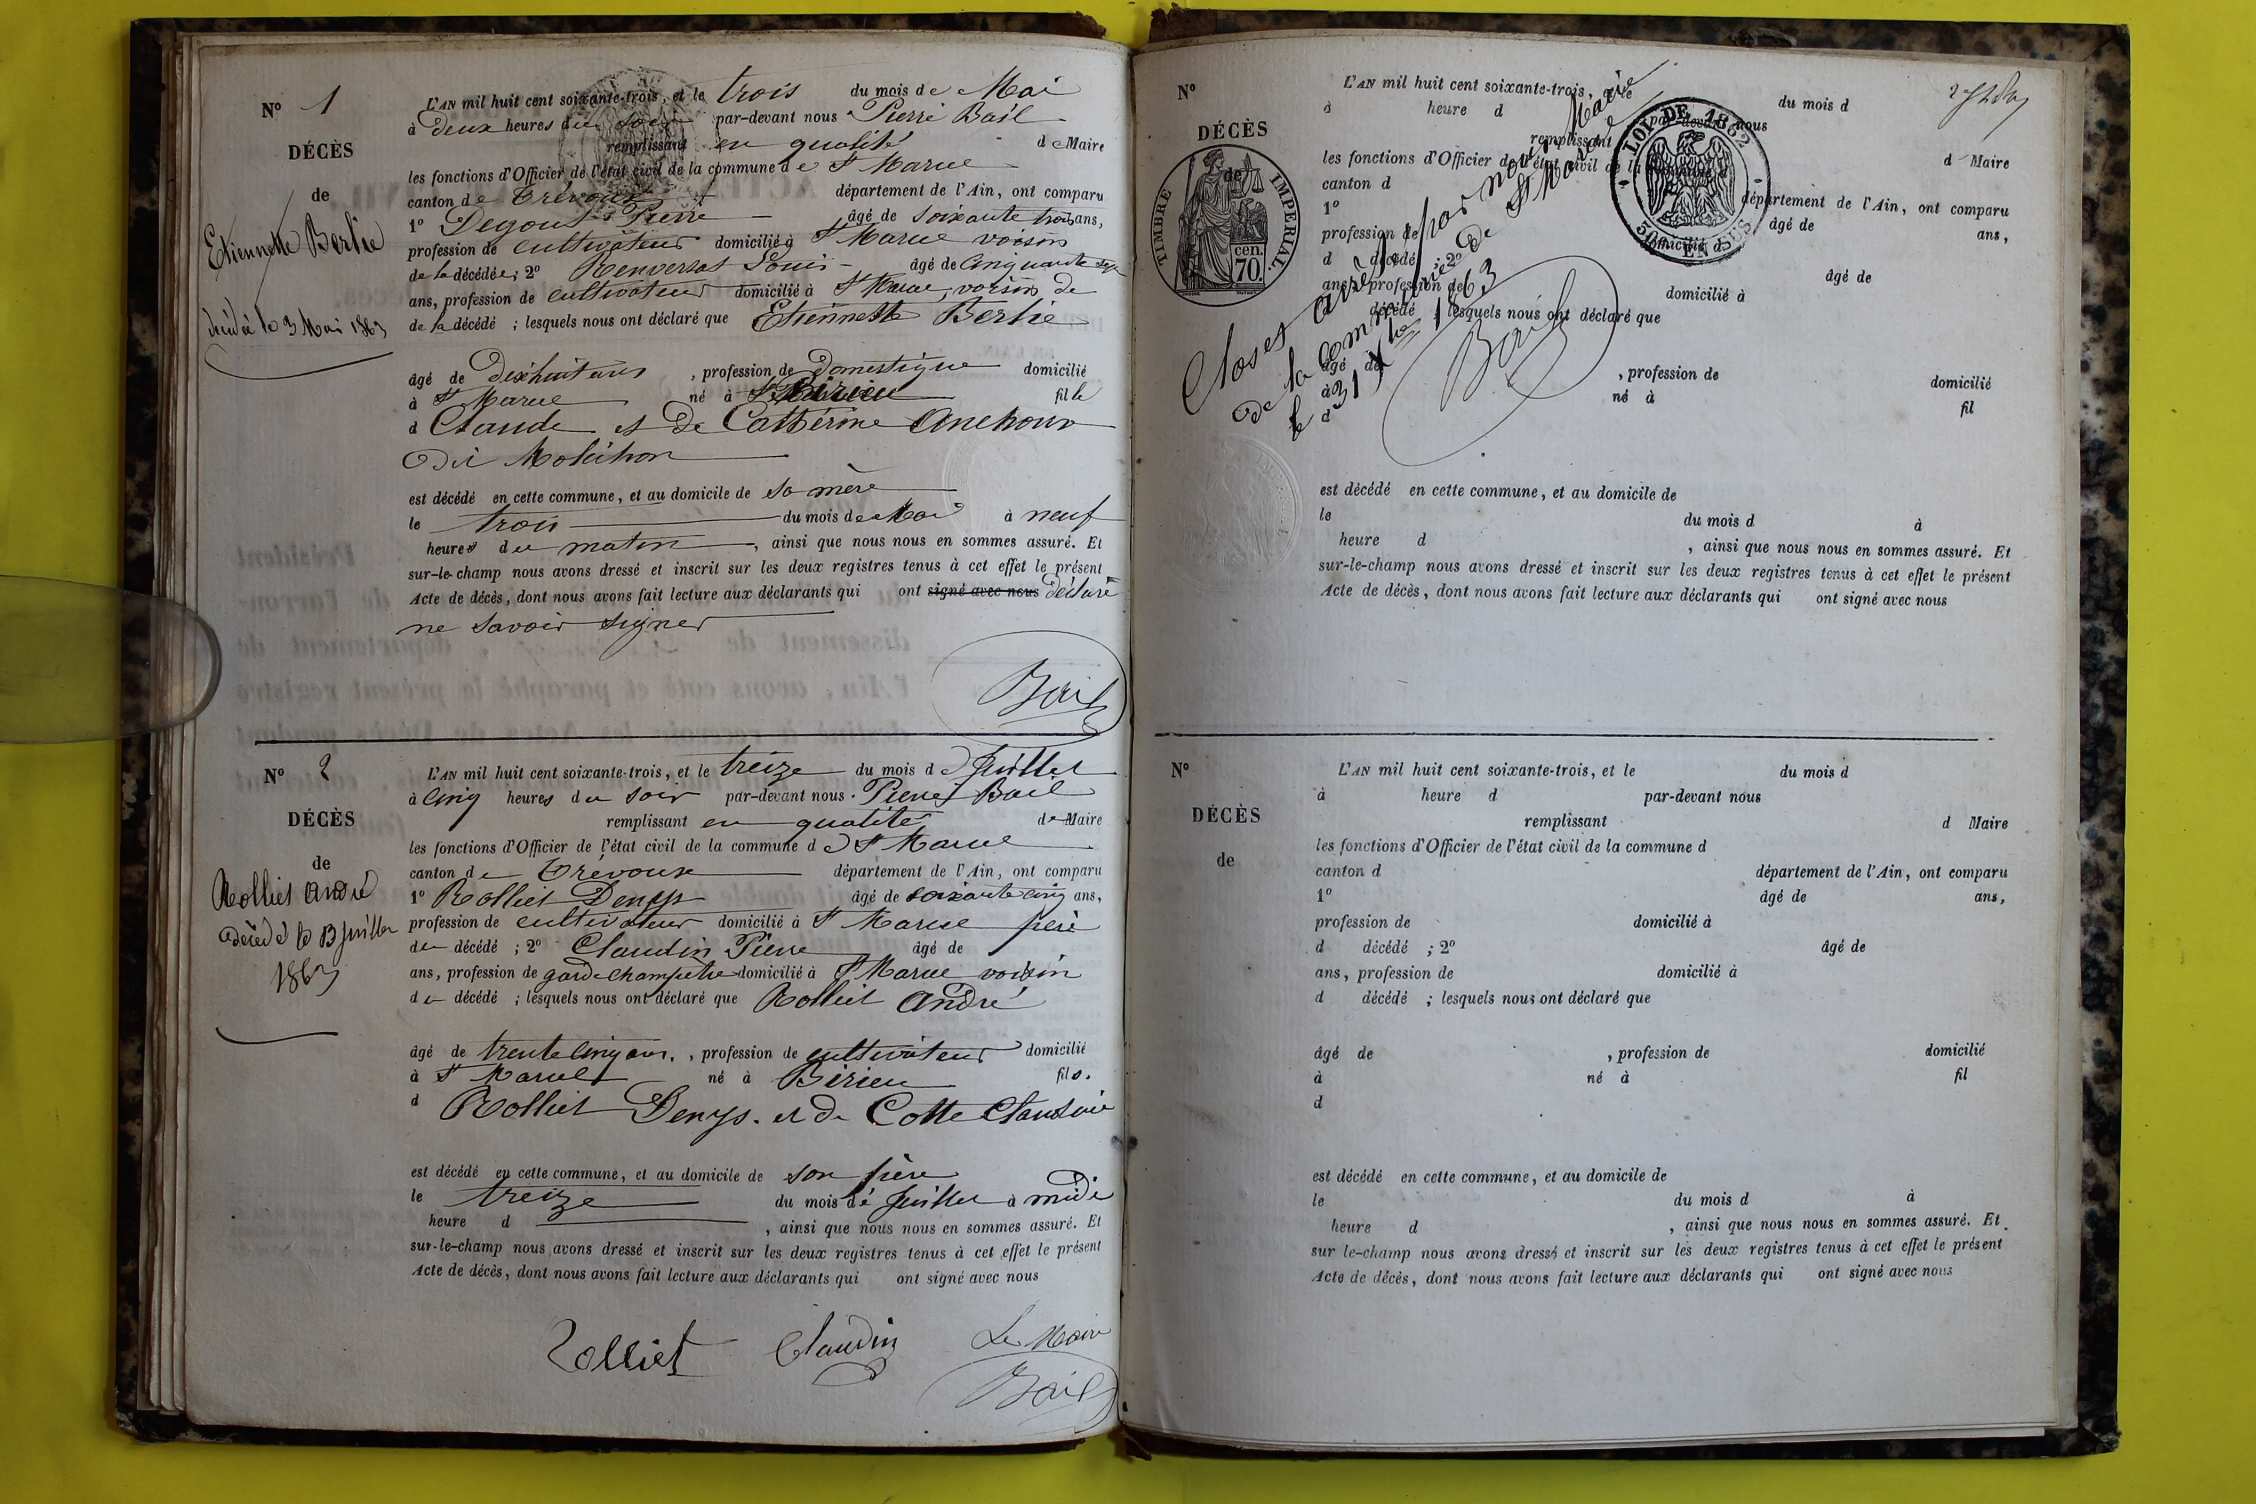 N° 1
DÉCÈS
de
Etiennette Berlie
décédé le 3 Mai 1863
L'AN mil huit cent soixante-trois, et le trois du mois de Mai
à deux heures du soir par-devant nous Pierre Bail
remplissant en qualité de Maire
les fonctions d'Officier de l'état civil de la commune de St Marcel
canton de Trévoux département de l'Ain, ont comparu
1° Degout Pierre âgé de soixante trois ans,
profession de cultivateur domicilié à St Marcel voisin
de la décédée; 2° Renversat Louis âgé de cinquante sept
ans, profession de cultivateur domicilié à St Marcel, voisin de
de la décédé ; lesquels nous ont déclaré que Etiennette Berlie
âgé de dixhuit ans , profession de domestique domicilié
à St Marcel né à Birieu fille
d Claude et de Catherine Anchoux
dit Molichon
est décédé en cette commune, et au domicile de sa mère
le trois du mois de Mai à neuf
heures du matin , ainsi que nous nous en sommes assuré. Et
sur-le-champ nous avons dressé et inscrit sur les deux registres tenus à cet effet le présent
Acte de décès, dont nous avons fait lecture aux déclarants qui ont signé avec nous déclaré
ne savoir signer
Bail
N° 2
DÉCÈS
de
Rolliet André
décédé le 13 juillet
1863
L'AN mil huit cent soixante-trois, et le treize du mois de Juillet
à cinq heures du soir par-devant nous Pierre Bail
remplissant en qualité de Maire
les fonctions d'Officier de l'état civil de la commune de St Marcel
canton de Trévoux département de l'Ain, ont comparu
1° Rolliet Denys âgé de soixante cinq ans,
profession de cultivateur domicilié à St Marcel père
du décédé ; 2° Claudin Pierre âgé de
ans, profession de garde champetre domicilié à St Marcel voisin
du décédé ; lesquels nous ont déclaré que Rolliet André
âgé de trente cinq ans. , profession de cultivateur domicilié
à St Marcel né à Birieu fils.
d Rolliet Denys. et de Cotte Claudine
est décédé en cette commune, et au domicile de son père
le treize du mois de Juillet à midi
heure d , ainsi que nous nous en sommes assuré. Et
sur-le-champ nous avons dressé et inscrit sur les deux registres tenus à cet effet le présent
Acte de décès, dont nous avons fait lecture aux déclarants qui ont signé avec nous
Rolliet Claudin Le Maire
Bail
N°
DÉCÈS
de
TIMBRE IMPERIAL.
70 cen.
LOI DE 1862
50% EN SUS
L'AN mil huit cent soixante-trois, et le du mois d
à heure d par-devant nous
remplissant d Maire
les fonctions d'Officier de l'état civil de la commune d
canton d département de l'Ain, ont comparu
1° âgé de ans,
profession de domicilié à
d décédé ; 2° âgé de
ans, profession de domicilié à
d décédé ; lesquels nous ont déclaré que
Clos et arrêté par nous Maire
de la commune de St Marcel
le 31 Xbre 1863
Bail
âgé de , profession de domicilié
à né à fil
d
est décédé en cette commune, et au domicile de
le du mois d à
heure d , ainsi que nous nous en sommes assuré. Et
sur-le-champ nous avons dressé et inscrit sur les deux registres tenus à cet effet le présent
Acte de décès, dont nous avons fait lecture aux déclarants qui ont signé avec nous
N°
DÉCÈS
de
L'AN mil huit cent soixante-trois, et le du mois d
à heure d par-devant nous
remplissant d Maire
les fonctions d'Officier de l'état civil de la commune d
canton d département de l'Ain, ont comparu
1° âgé de ans,
profession de domicilié à
d décédé ; 2° âgé de
ans, profession de domicilié à
d décédé ; lesquels nous ont déclaré que
âgé de , profession de domicilié
à né à fil
d
est décédé en cette commune, et au domicile de
le du mois d à
heure d , ainsi que nous nous en sommes assuré. Et
sur le-champ nous avons dressé et inscrit sur les deux registres tenus à cet effet le présent
Acte de décès, dont nous avons fait lecture aux déclarants qui ont signé avec nous